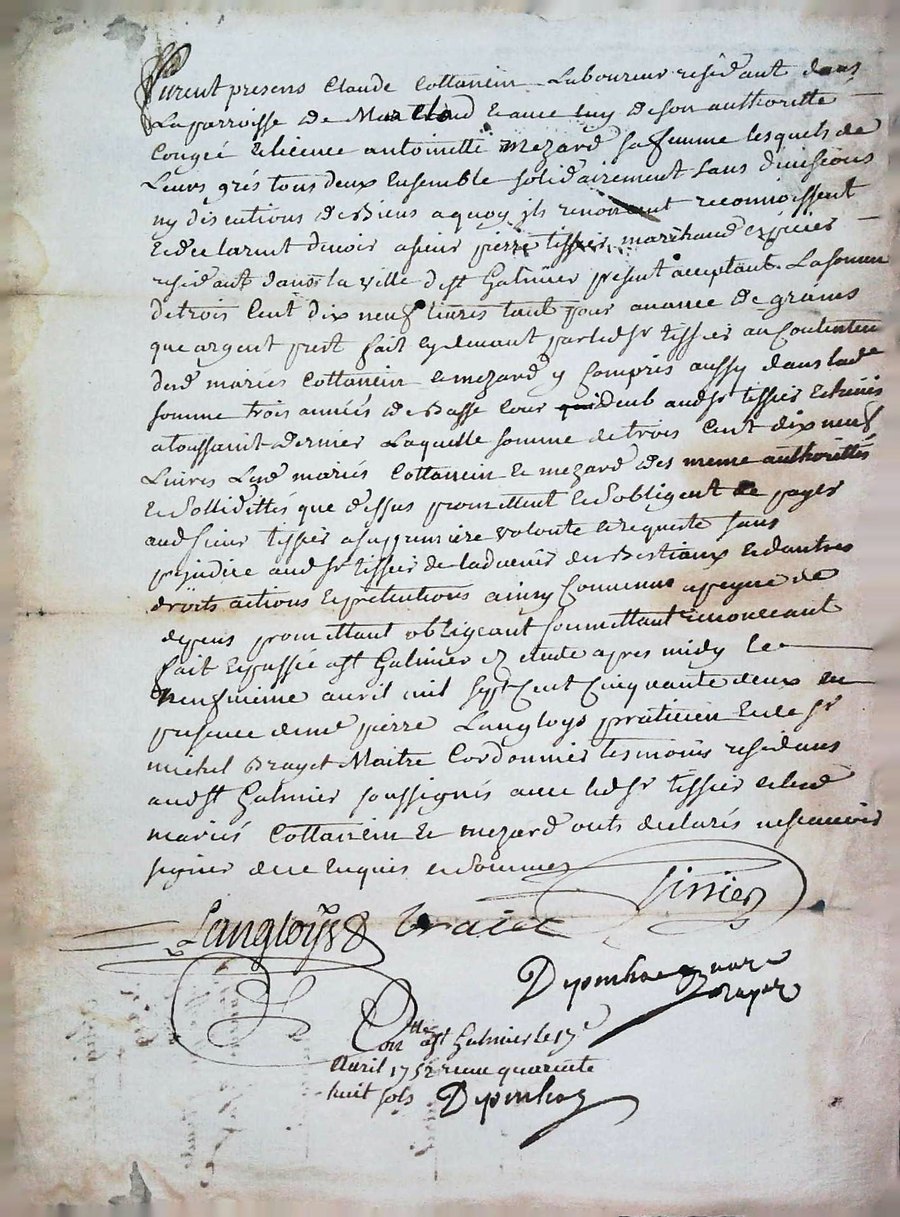 Furent presens Claude Cottancin Laboureur residant dans
La parroisse de et avec luy de son authoritté
Congée et licence antoinette mezard sa femme lesquels de
Leurs grés tous deux Ensemble solidairement sans divisions
ny discutions de Biens a quoy jls renoncent reconnoissent
et declarent devoir a sieur pierre tissier marchand epicier
residant dans la ville de st Galmier présent acceptant La somme
de trois Cent dix neuf livres tant pour avance de grains
que argent prest fait cy devant par ledt sr tissier au Contentem
desd mariés Cottancin et mezard y Compris aussy dans lade
somme trois années de Basse Cour deub audt sr tissier Echües
a toussaint dernier Laquelle somme de trois Cent dix neuf
Livres Lesd mariés Cottancin et mezard des meme authorittés
et sollidittés que dessus promettent et s'obligent de payer
audt sieur tissier a sa premiere volonté et requeste sans
prejudice audt sr tissier de ladvenir des Bestiaux et dautres
droits actions et prétentions ainsy Convenus a peyne de
depens promettant obligeant soumettant renoncant
fait et passé a st Galmier Ez étude apres midy Le
neufvieme avril mil sept Cent Cinquante deux en
presence de me pierre Langloys praticien et de sr
michel Brayet Maitre Cordonnier tesmoins residans
audt st Galmier soussignés avec ledt sr tissier et lesd
mariés Cottancin et mezard onts declarés ne scavoir
signer de ce Enquis et sommez
Langloys Braiet Tissier
Depinhac
Conttlé a st Galmier le 17e
Avril 1752 receu quarente
huit sols Depinhac